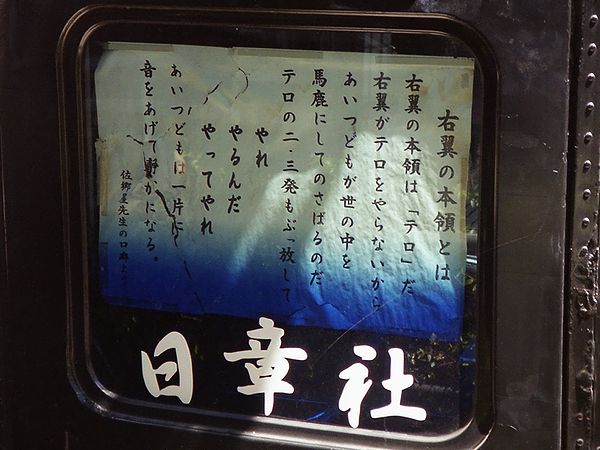 右翼の本領とは
右翼の本領は「テロ」だ
右翼がテロをやらないから
あいつどもが世の中を
馬鹿にしてのさばるのだ
テロの二・三発もぶっ放して
やれ
やるんだ
やってやれ
あいつどもは一片に
音をあげて静かになる。
佐郷屋先生の口癖より
日章社